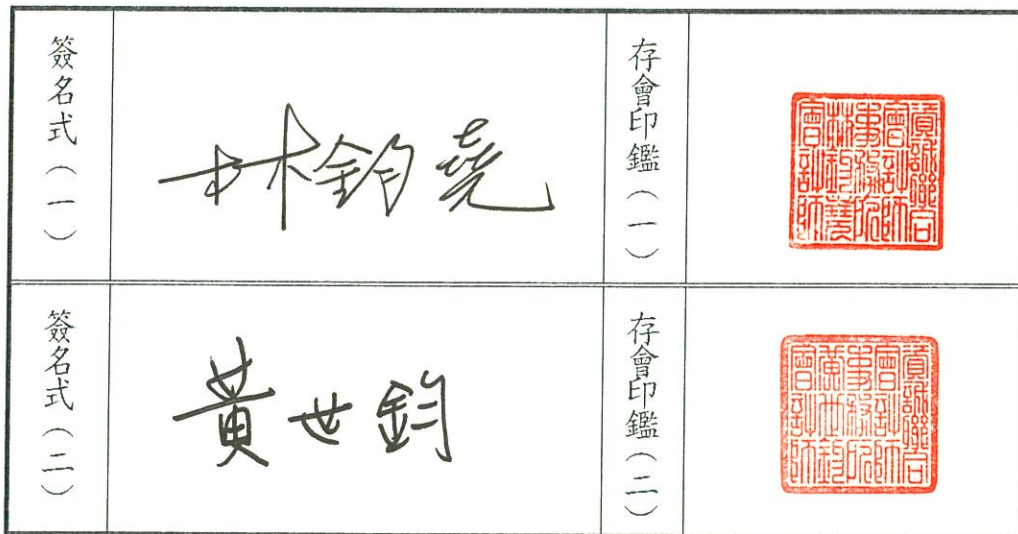 簽名式（一）
林鈞堯
存會印鑑（一）
資誠聯合
會計師
事務所
林鈞堯
會計師
簽名式（二）
黃世鈞
存會印鑑（二）
資誠聯合
會計師
事務所
黃世鈞
會計師